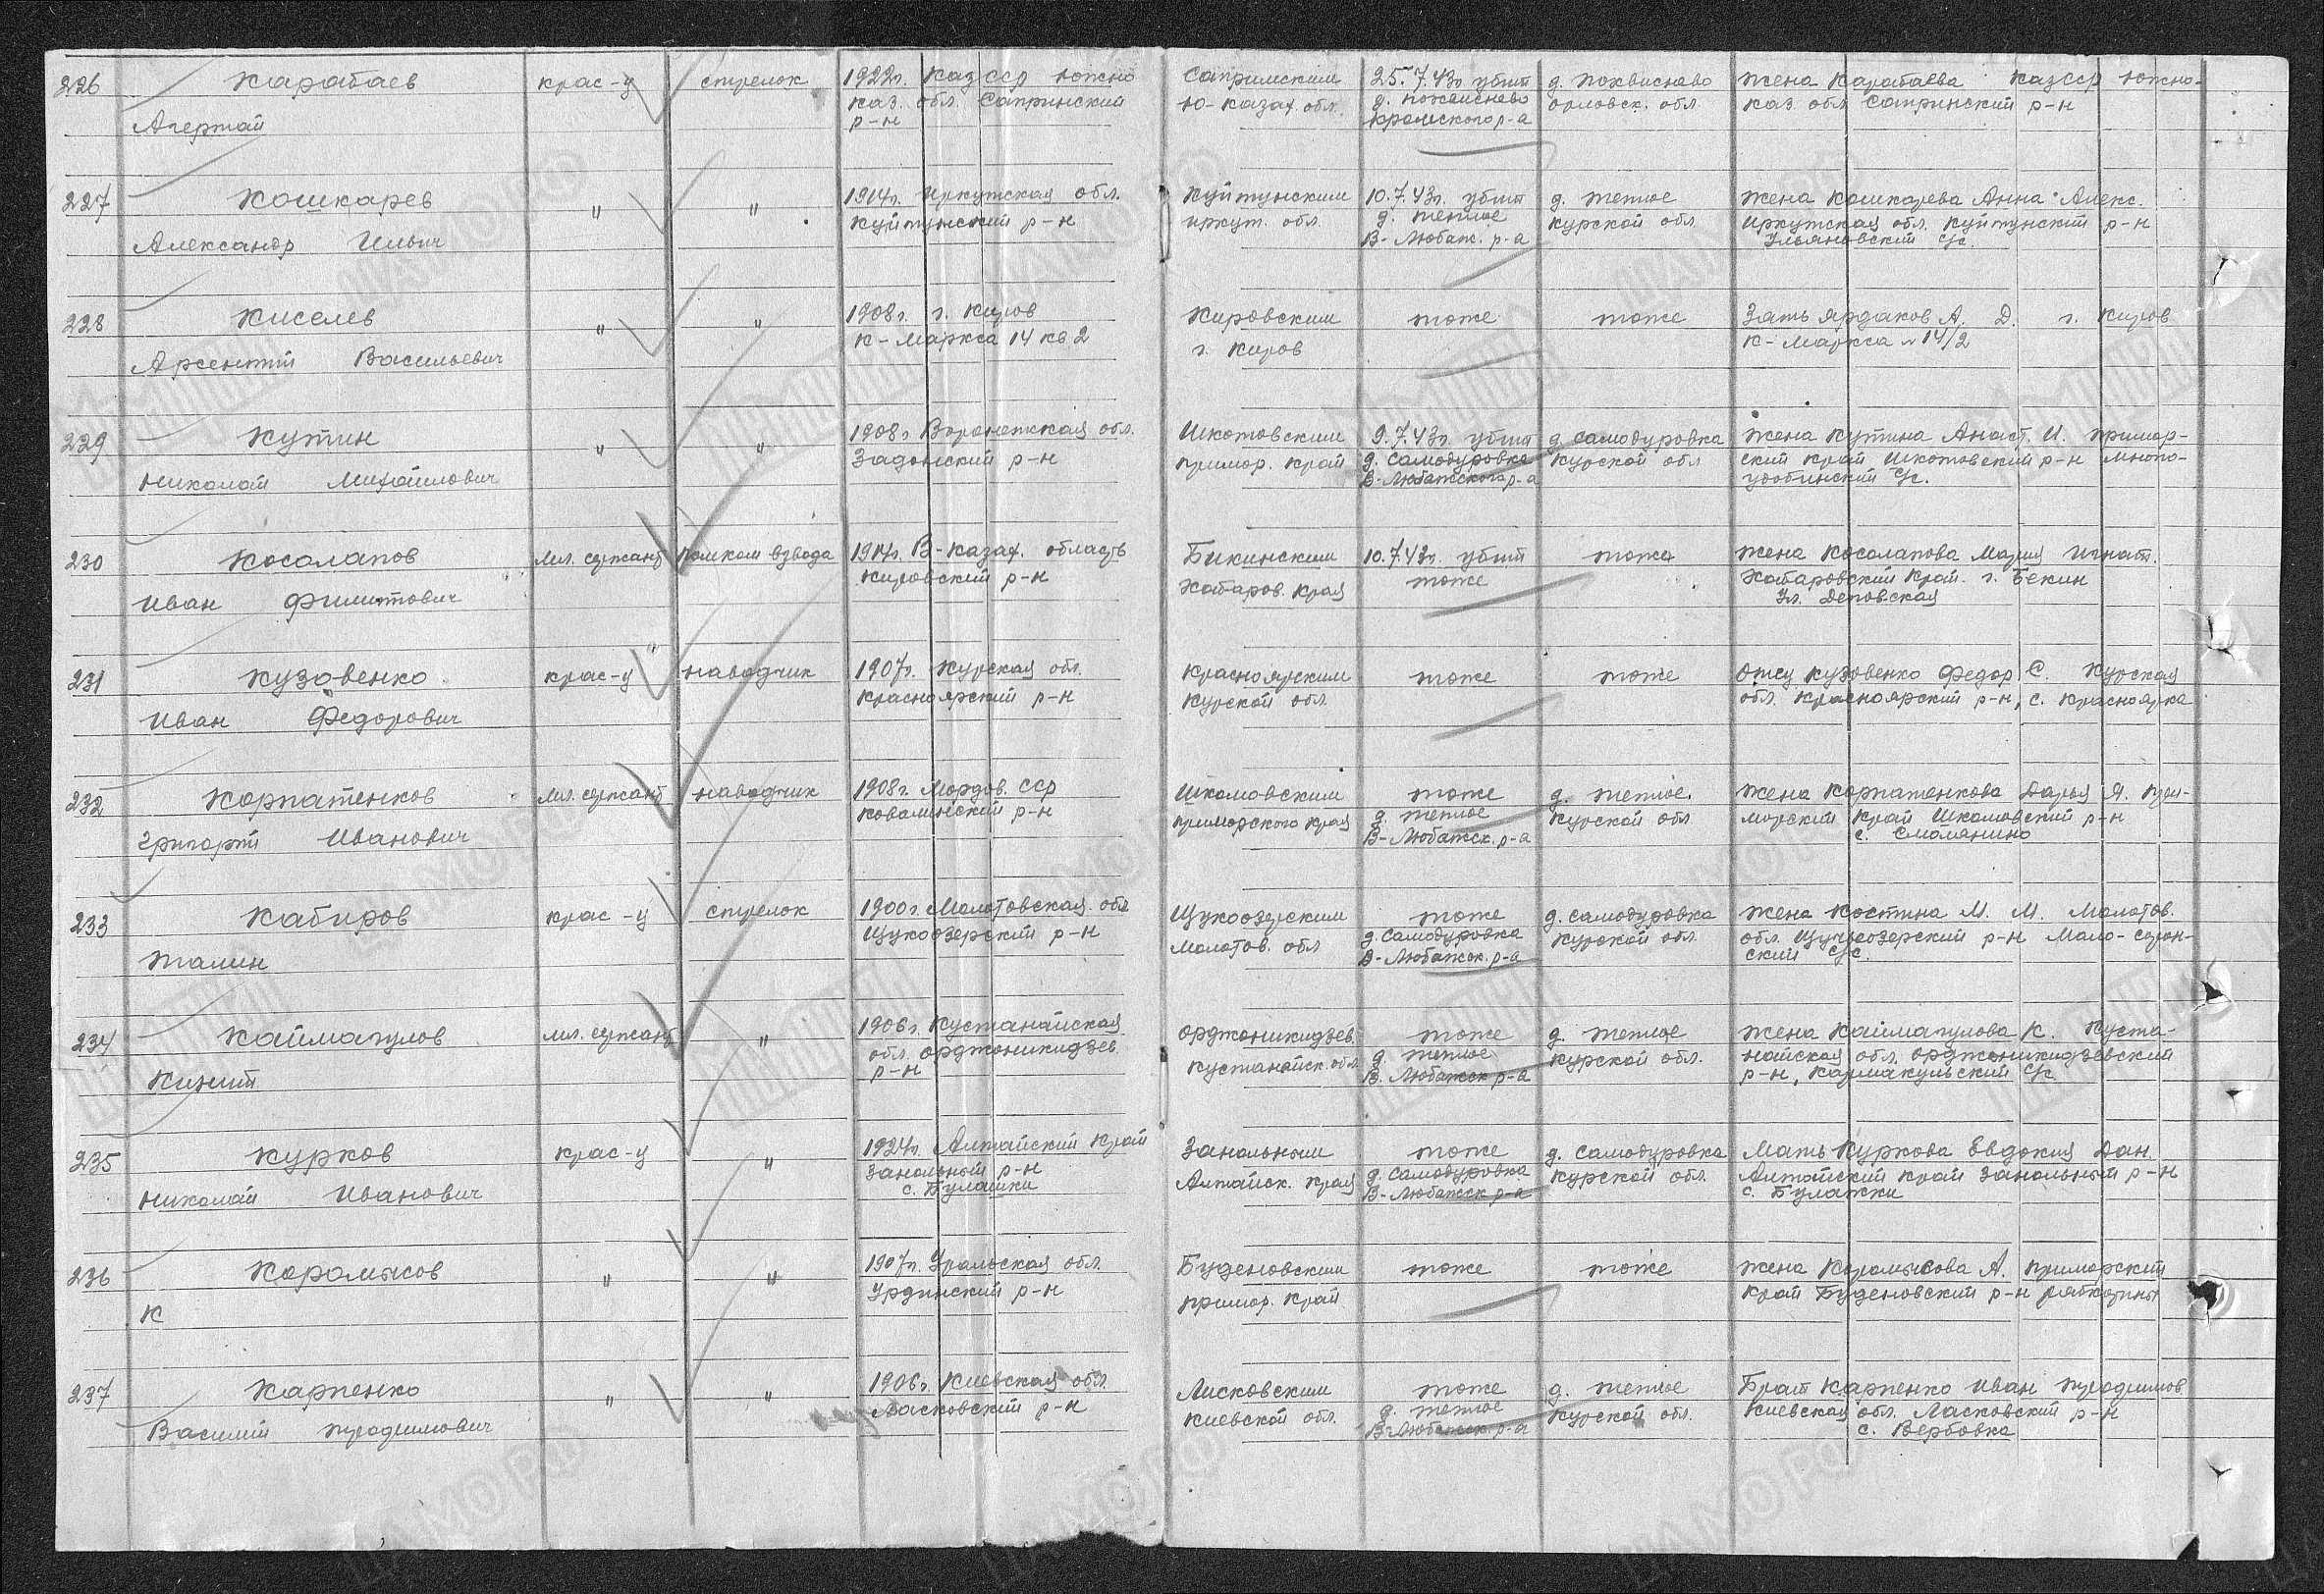 226 Карабаев крас-ц стрелок 1922г. КазССР Южно Сапримским 25.7.43г. убит д. похвиснево Жена Карабаева КазССР Южно-
каз. обл. Сапринский Ю-Казах. обл. д. похвиснево орловск. обл. каз. обл. Сапринский р-н
Агертай р-н Кромского р-а
227 Кошкарев " " 1914г. Иркутская обл. Куйтунским 10.7.43г. убит д. теплое Жена Кошкарева Анна Алекс.
Куйтунский р-н иркут. обл. д. теплое курской обл. Иркутская обл. Куйтунский р-н
Александр Ильич В-Любаж. р-а Ульяновский с/с
228 Киселев " " 1908г. г. Киров Кировским тоже тоже Зять Ярдаков А. Д. г. Киров
К-Маркса 14 кв 2 г. Киров К-Маркса 14/2
Арсентий Васильевич
229 Кутин " " 1908г. Воронежская обл. Шкотовским 9.7.43г. убит д. Самодуровка Жена Кутина Анаст. И. примор-
Задонский р-н примор. край д. Самодуровка Курской обл ский край Шкотовский р-н Много-
Николай Михайлович В-Любажского р-а удобинский с/с.
230 Косолапов мл. сержант помком взвода 1914г. В-Казах. область Бикинским 10.7.43г. убит тоже Жена Косолапова Мария Игнат.
Кировский р-н Хабаров. края тоже Хабаровский край. г. Бекин
Иван Филиппович ул. Деповская
231 Кузовенко крас-ц наводчик 1907г. Курская обл. Красноярским тоже тоже Отец Кузовенко Федор С. Курская
Красноярский р-н Курской обл. обл. Красноярский р-н, с. Красноярка
Иван Федорович
232 Корпатенков мл. сержант наводчик 1908г. Мордов. ССР Шкотовским тоже д. теплое. Жена Корпатенкова Дарья Я. При-
Ковалинский р-н приморского края д. теплое Курской обл морский край Шкотовский р-н
Григорий Иванович В-Любажск. р-а с. Смолянино
233 Кабиров крас-ц стрелок 1900г. Молотовская обл Щукоозерским тоже д. Самодуровка Жена Костина М. М. Молотов.
Щукоозерский р-н Молотов. обл д. Самодуровка Курской обл обл. Щучьеозерский р-н Мало-
Талин В-Любажск. р-а ский с/с.
234 Каймагулов мл. сержант " 1906г. Кустанайская Орджоникидзев. тоже д. теплое Жена Каймагулова К. Куста-
обл. Орджоникидзев. Кустанайск. обл. д. теплое Курской обл. найская обл. Орджоникидзевский
р-н В. Любажск р-а р-н, Кармакульский с/с.
235 Курков крас-ц " 1924г. Алтайский край Занольным тоже д. Самодуровка Мать Куркова Евдокия Дан.
Занольный р-н Алтайск. края д. Самодуровка Курской обл. Алтайский край Занольный р-н
Николай Иванович с. Булашки В-Любажск р-а с. Булажки
236 Коромысов " " 1907г. Уральская обл. Буденовским тоже тоже Жена Коромысова А. Приморский
Урдинский р-н примор. край край Буденовский р-н
К
237 Карпенко " " 1906г. Киевская обл. Лисковским тоже д. теплое Брат Карпенко Иван
Ласковский р-н Киевской обл. д. теплое Курской обл. Киевская обл. Ласковский р-н
Василий В-Любажск. р-а с. Вербовка